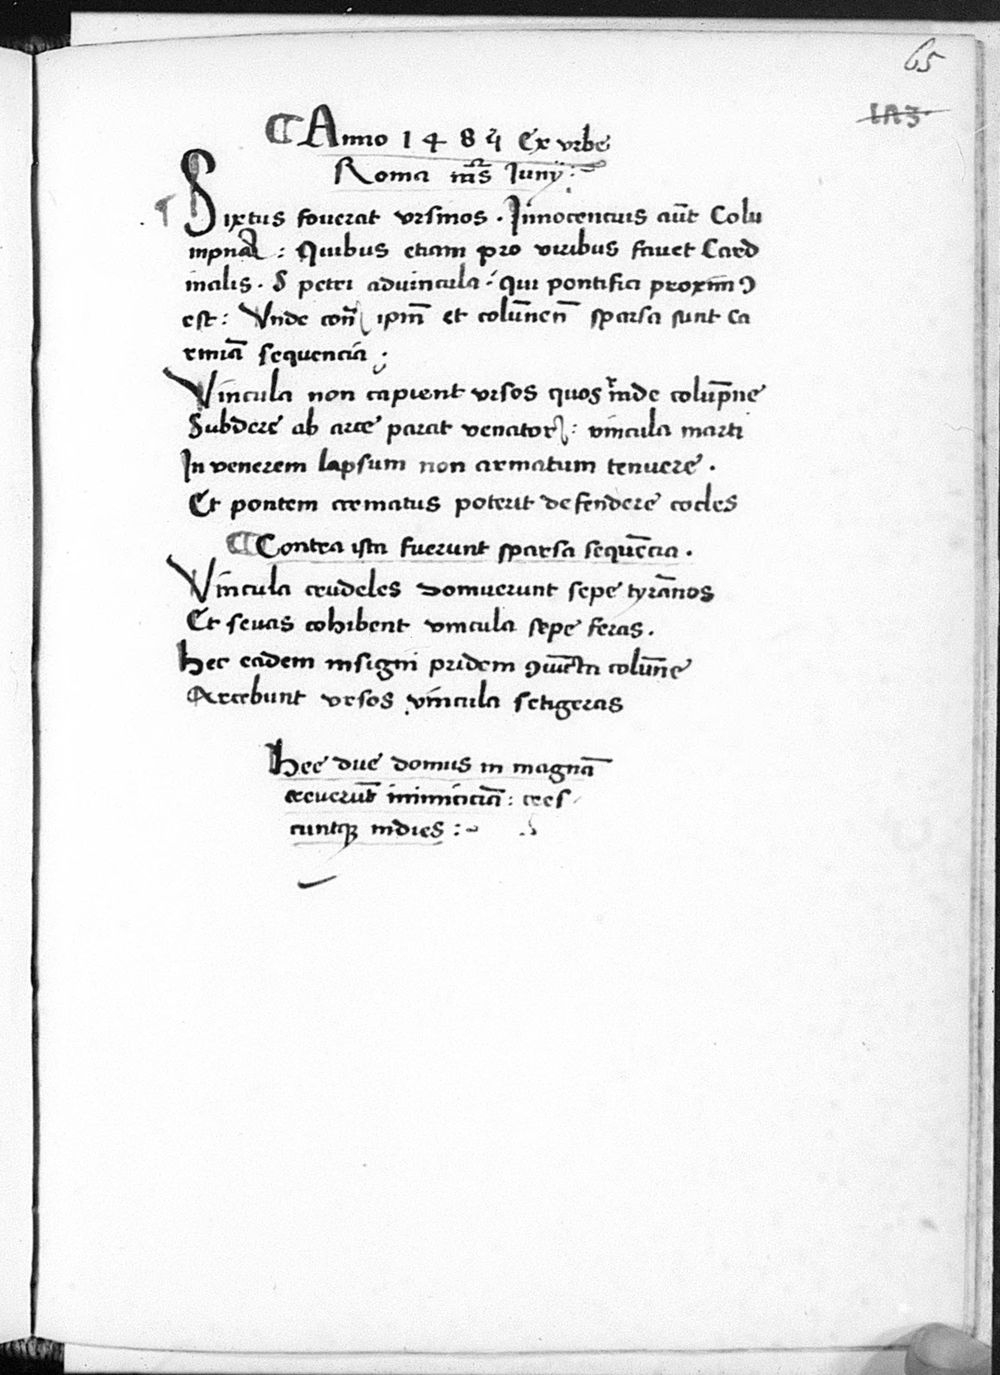 65
¶ Anno 1485 Ex vrbe
Roma mẽs Iunij :~
Sixtus fouerat vrsinos . Innocencius aũt Colu
mpnã : Quibus etiam pro viribus fauet Card
inalis . S petri aduincula : qui pontifici proximꝯ
est : Vnde cont ipm̃ et colũnen̄ sparsa sunt ca
rmiā sequencia :
Vincula non capient vrsos quos tade colup̄ne
Subdere ab arce parat venator : vincula marti
In venerem lapsum non armatum tenuere .
Et pontem crematus poterit defendere cocles
¶ Contra ista fuerunt sparsa sequẽcia .
Vincula crudeles domuerunt sepe tyrãnos
Et seuas cohibent vincula sepe feras .
Hec eadem insigni pridem ꝯiũcta colũne
Arcebunt vrsos vincula setigeras
Hee due domus in magnā
creuerũt inimiciciā : cres
cuntqꝫ indies :~